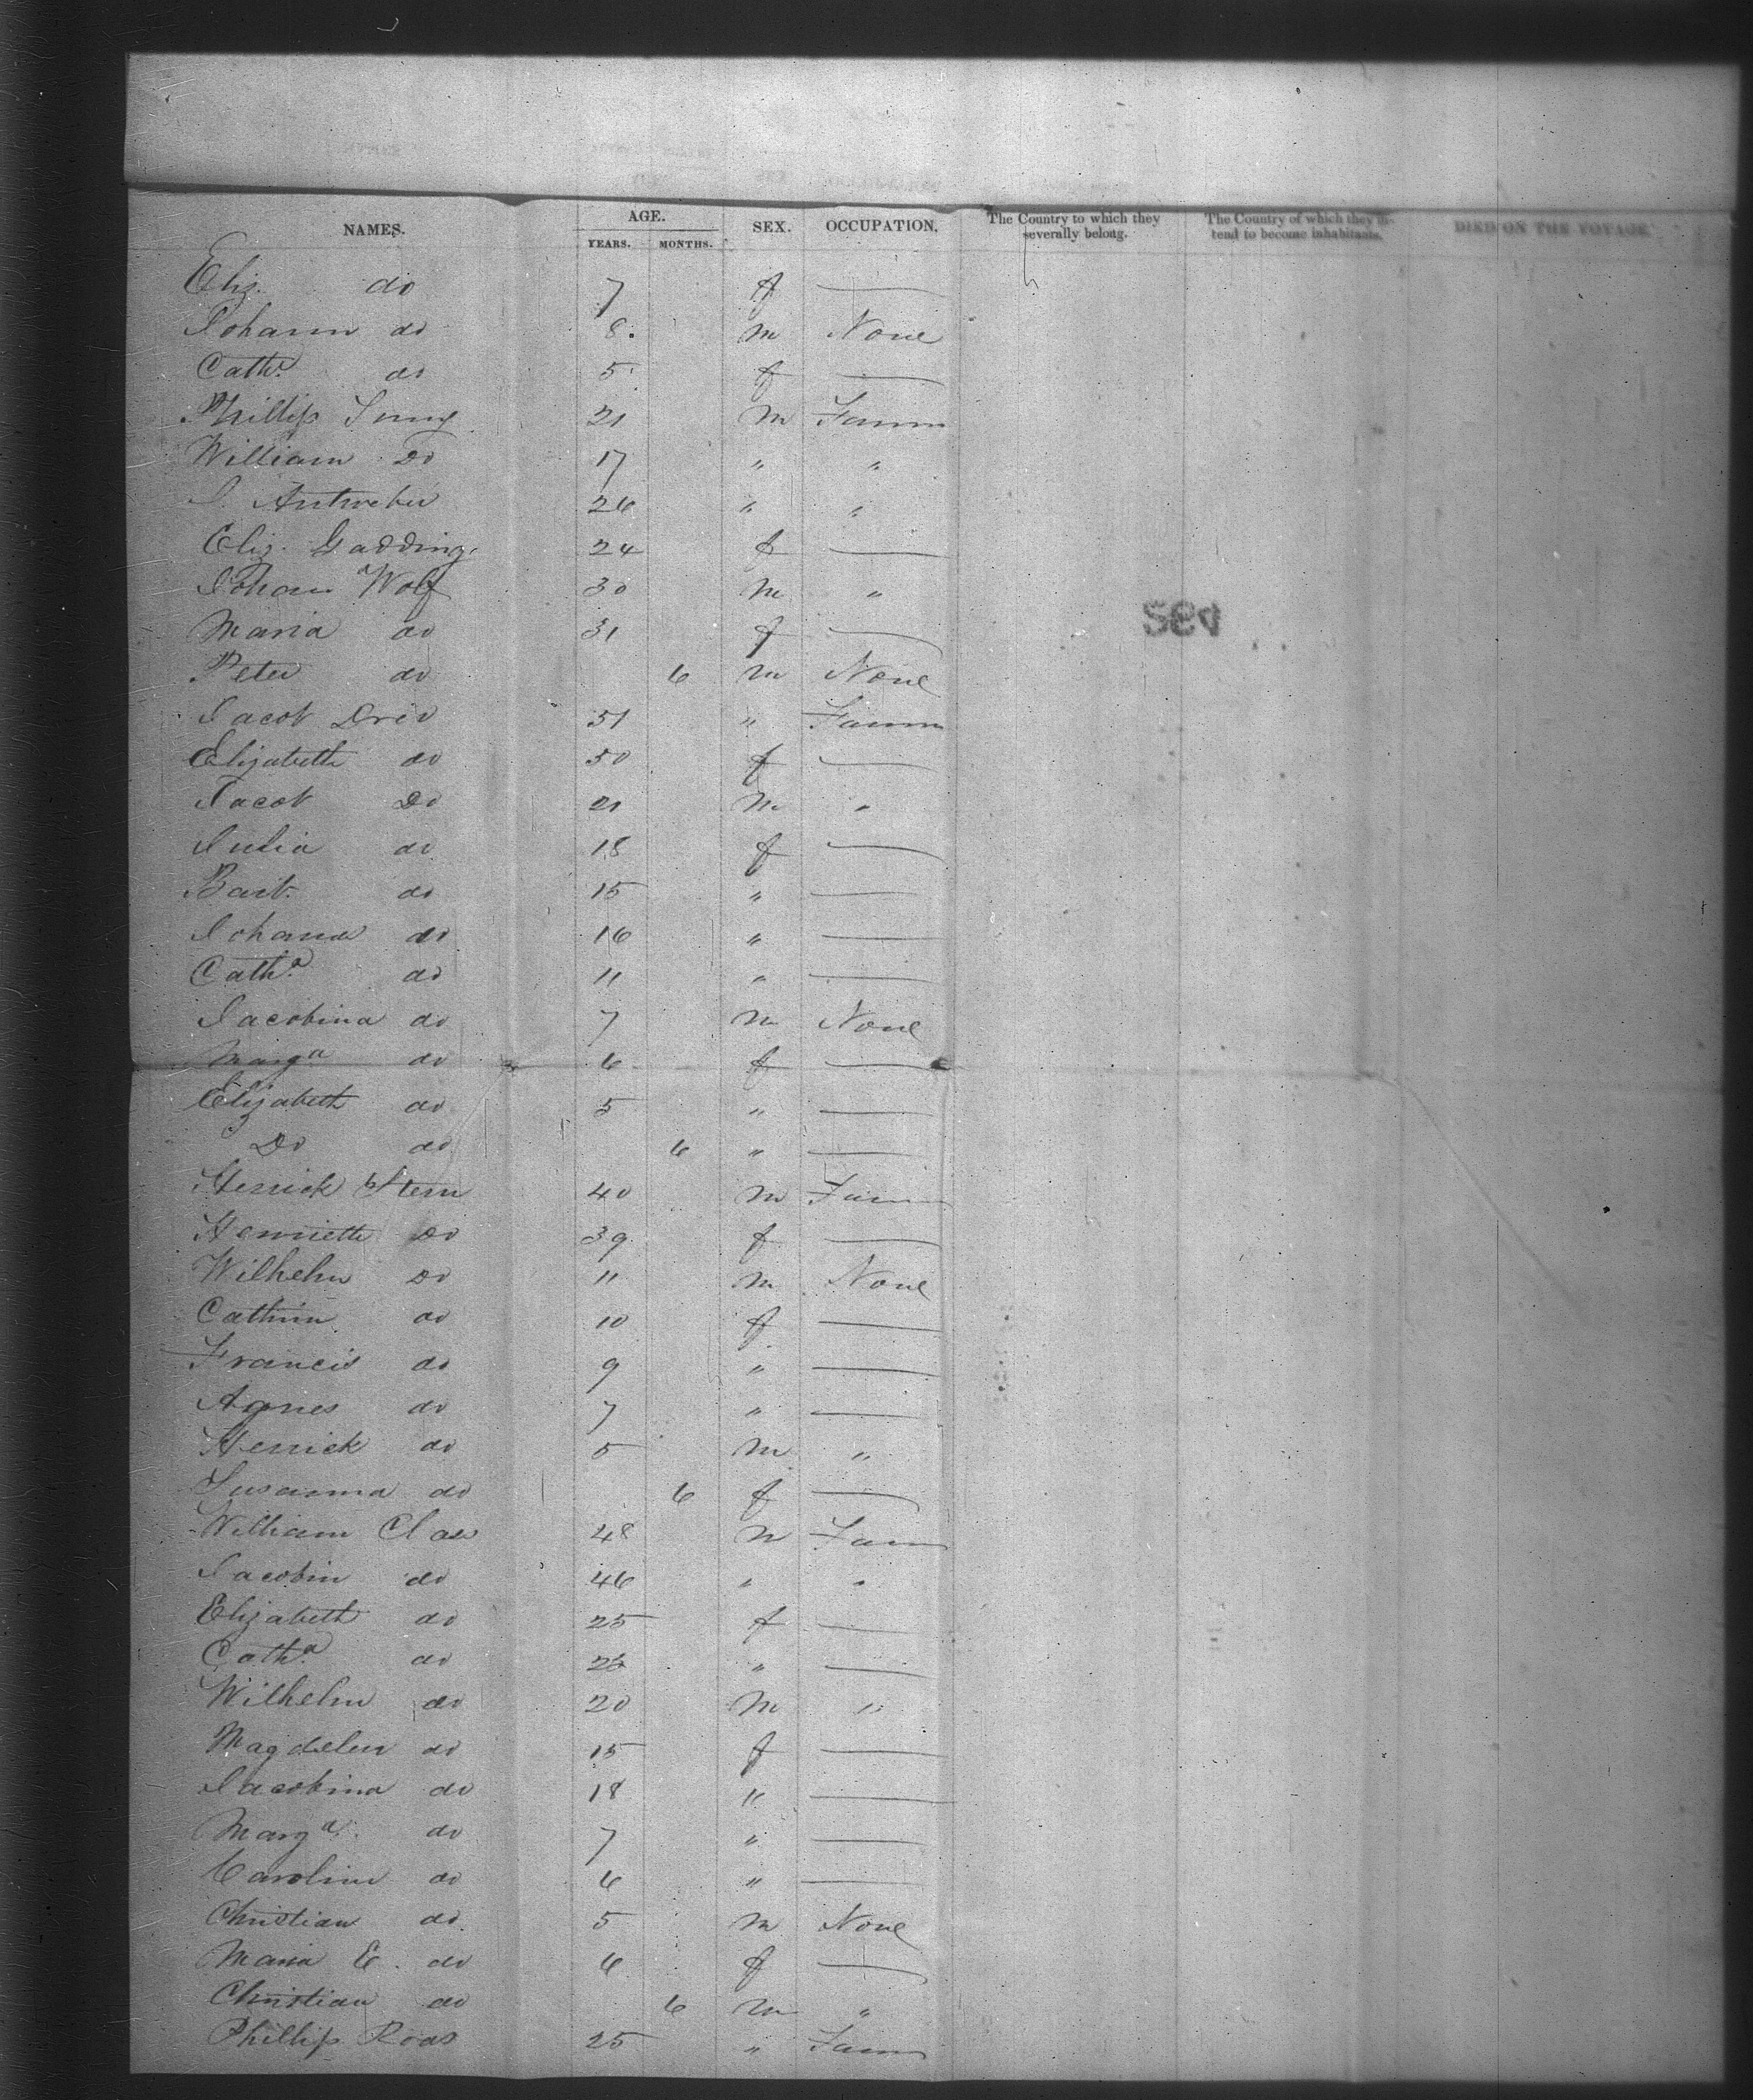 NAMES. AGE. YEARS. MONTHS. SEX. OCCUPATION. The Country to which they severally belong. The Country of which they intend to become inhabitants. DIED ON THE VOYAGE
Eliz. do 7 f —
Johann do 8. m None
Cath.a do 5 f —
Phillip Jung 21 m Farm
William Do 17 " "
J. Antweber 26 " "
Eliz. Gadding 24 f —
Johan Wolf 30 m "
Maria do 31 f —
Peter do 6 m None
Jacob Drev 51 " Farm
Elizabeth do 50 f —
Jacob Do 21 m "
Julia do 18 f —
Barb. do 15 " —
Johana do 16 " —
Cath.a do 11 " —
Jacobina do 7 m None
Marga do 6 f —
Elizabeth do 5 " —
Do do 6 " —
Henrick Stern 40 m Farm
Henriette Do 39 f —
Wilhelm Do 11 m None
Cathrin do 10 f —
Francis do 9 " —
Agnes do 7 " —
Henrick do 5 m "
Susanna do 6 f —
William Claes 48 m Farm
Jacobin do 46 " "
Elizabeth do 25 f —
Cath.a do 23 " —
Wilhelm do 20 m "
Magdelen do 15 f —
Jacobina do 18 " —
Marga do 7 " —
Carolin do 6 " —
Christian do 5 m None
Maria E. do 6 f —
Christian do 6 m "
Phillip Roas 25 " Farm